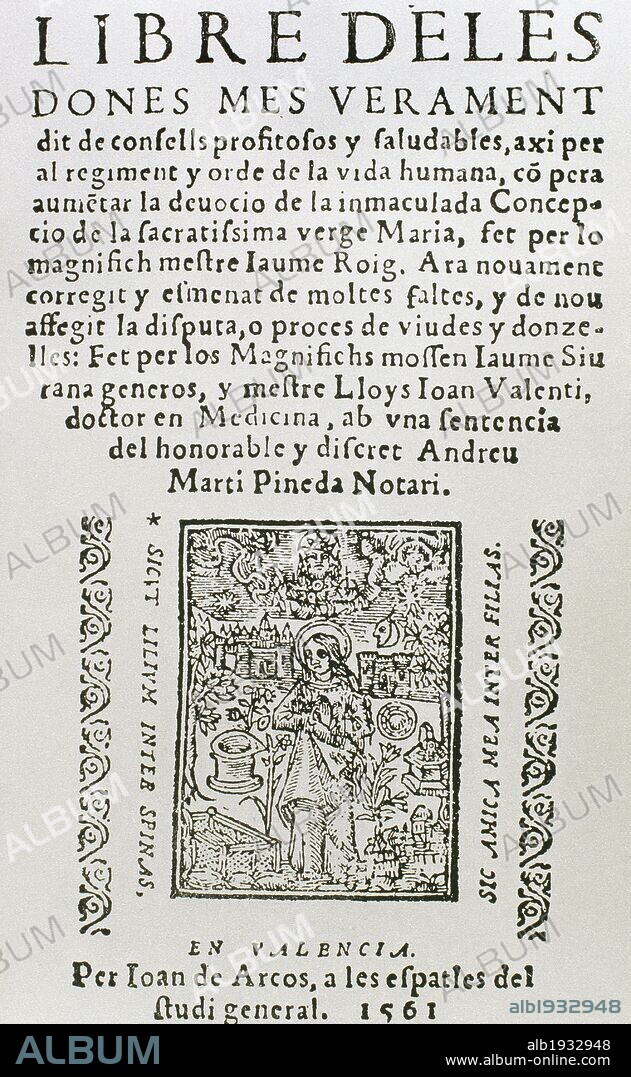 LIBRE DELES
DONES MES VERAMENT
dit de conſells profitoſos y ſaludables, axi per
al regiment y orde de la vida humana, cō pera
aumētar la deuocio de la inmaculada Concep-
cio de la ſacratiſsima verge Maria, fet per lo
magnifich meſtre Iaume Roig. Ara nouament
corregit y eſmenat de moltes faltes, y de nou
affegit la diſputa, o proces de viudes y donze-
lles: Fet per los Magnifichs moſſen Iaume Siu
rana generos, y meſtre Lloys Ioan Valenti,
doctor en Medicina, ab vna ſentencia
del honorable y diſcret Andreu
Marti Pineda Notari.
* SICVT LILIVM INTER SPINAS,
SIC AMICA MEA INTER FILIAS.
EN VALENCIA.
Per Ioan de Arcos, a les eſpatles del
ſtudi general. 1561
alb1932948
ALBUM
alb1932948
www.album-online.com